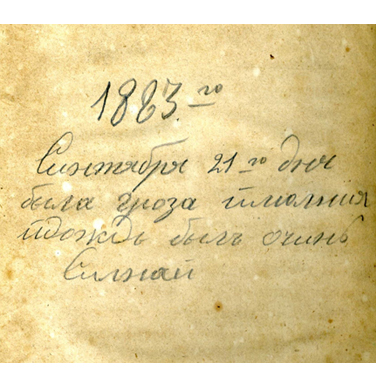 1883.го
Синтября 21 го дня
была гроза имолния
идождь былъ очинь
Силнай